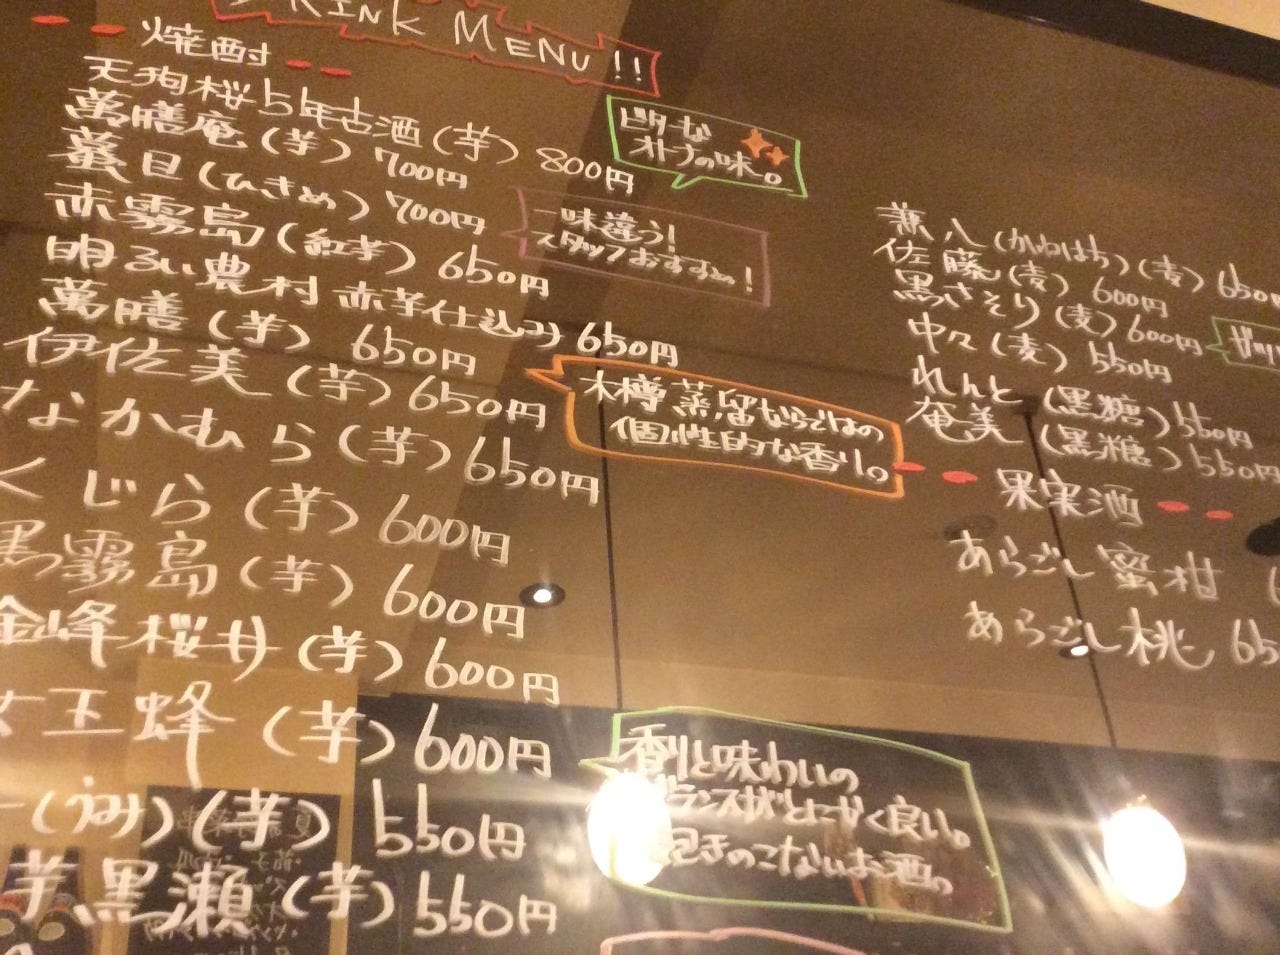 DRINK MENU!!
焼酎
天狗桜5年古酒(芋) 800円
ビターな
オトナの味。
萬膳庵(芋) 700円
蔓日(ひきめ) 700円
一味違う!
スタッフおすすめ!
赤霧島(紅芋) 650円
明るい農村 赤芋仕込み 650円
萬膳(芋) 650円
木樽蒸留ならではの
個性的な香り。
伊佐美(芋) 650円
なかむら(芋) 650円
くじら(芋) 600円
黒霧島(芋) 600円
金峰桜井(芋) 600円
女王蜂(芋) 600円
香りと味わいの
バランス状とにかく良い。
飽きのこないお酒。
(うみ)(芋) 550円
芋黒瀬(芋) 550円
兼八(かねはち)(麦) 650円
佐藤(麦) 600円
黒さそり(麦) 600円
中々(麦) 550円
れんと(黒糖) 550円
奄美(黒糖) 550円
果実酒
あらごし蜜柑(
あらごし桃 65